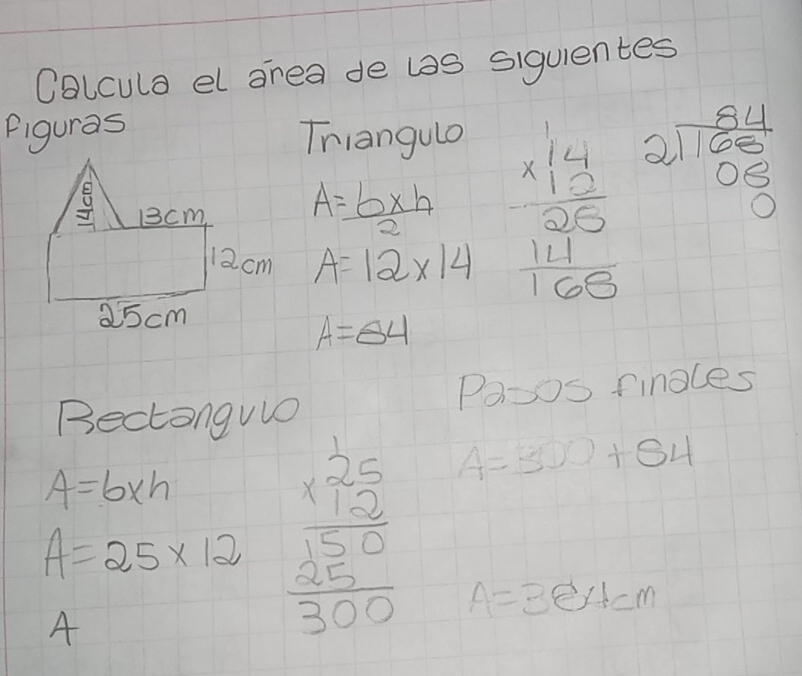 Calcula el area de las siguientes
figuras
14cm
13cm
12cm
25cm
Triangulo
A=bxh
2
A=12x14
A=84
1
14
x 12
28
14
168
84
2 168
08
0
Rectangulo
A=bxh
A=25x12
A
1
25
x 12
150
25
300
Pasos finales
A=300+84
A=384cm